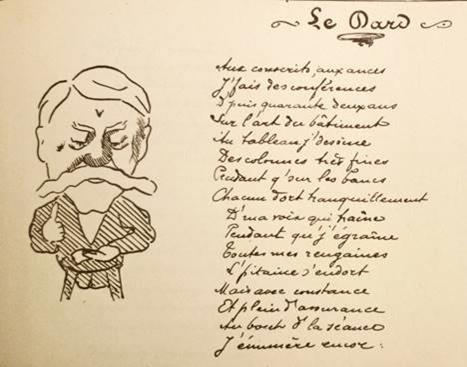 Le Dard
Aux conscrits, aux ances
J'fais des conférences
D'puis quarante deux ans
Sur l'art du bâtiment
Au tableau j'dessine
Des colonnes très fines
Pendant qu'sur les bancs
Chacun dort tranquillement
D'ma voix qui traîne
Pendant qu'j'égraîne
Toutes mes rengaines
L'pitaine s'endort
Mais avec constance
Et plein d'assurance
Au bout d'la séance
J'énumère encor :